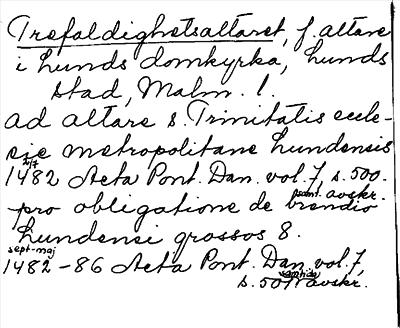 Trefaldighetsaltaret, f. altare
i Lunds domkyrka, Lunds
stad, Malm. l.
ad altare s. Trinitatis eccle-
sie metropolitane Lundensis
1482 Acta Pont. Dan. vol. 7, s. 500.
samt. avskr.
pro obligatione de brendio
Lundensi grossos 8.
sept-maj
1482-86 Acta Pont. Dan. vol. 7,
samtida
s. 501 avskr.